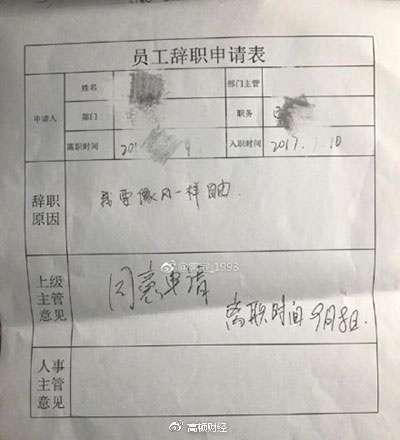 员工辞职申请表
姓名
部门主管
申请人
部门
职务
离职时间 201
入职时间 2017.7.10
辞职原因
我要像风一样自由.
上级主管意见
同意申请
离职时间 9月8日.
人事主管意见
高顿财经